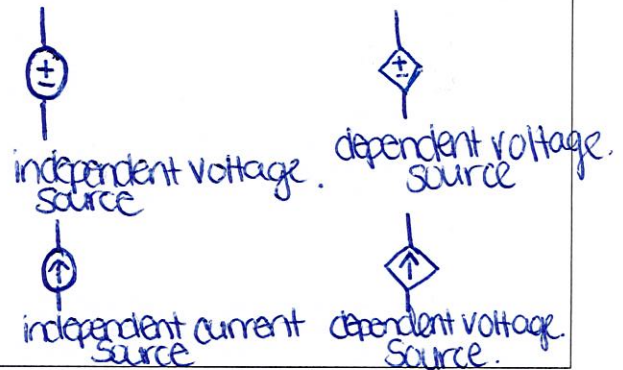 independent voltage.
source
dependent voltage.
source
independent current
source
dependent voltage.
source.